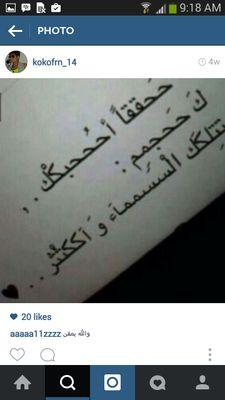 9:18 AM
PHOTO
kokofrn_14
4w
حَحققاً أحححبكگ ..
كَ حَججمم :
تتِلگك الْسَسَمماء و آككثثر ...
20 likes
aaaaa11zzzz والله بمقى